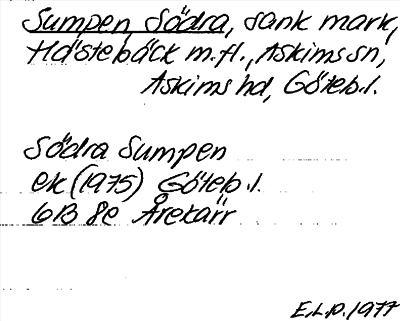 Sumpen Södra, sank mark,
Hästebäck m.fl., Askims sn,
Askims hd, Göteb.l.
Södra Sumpen
ek (1975) Göteb.l.
6B 8e Årekärr
E.L.P. 1977